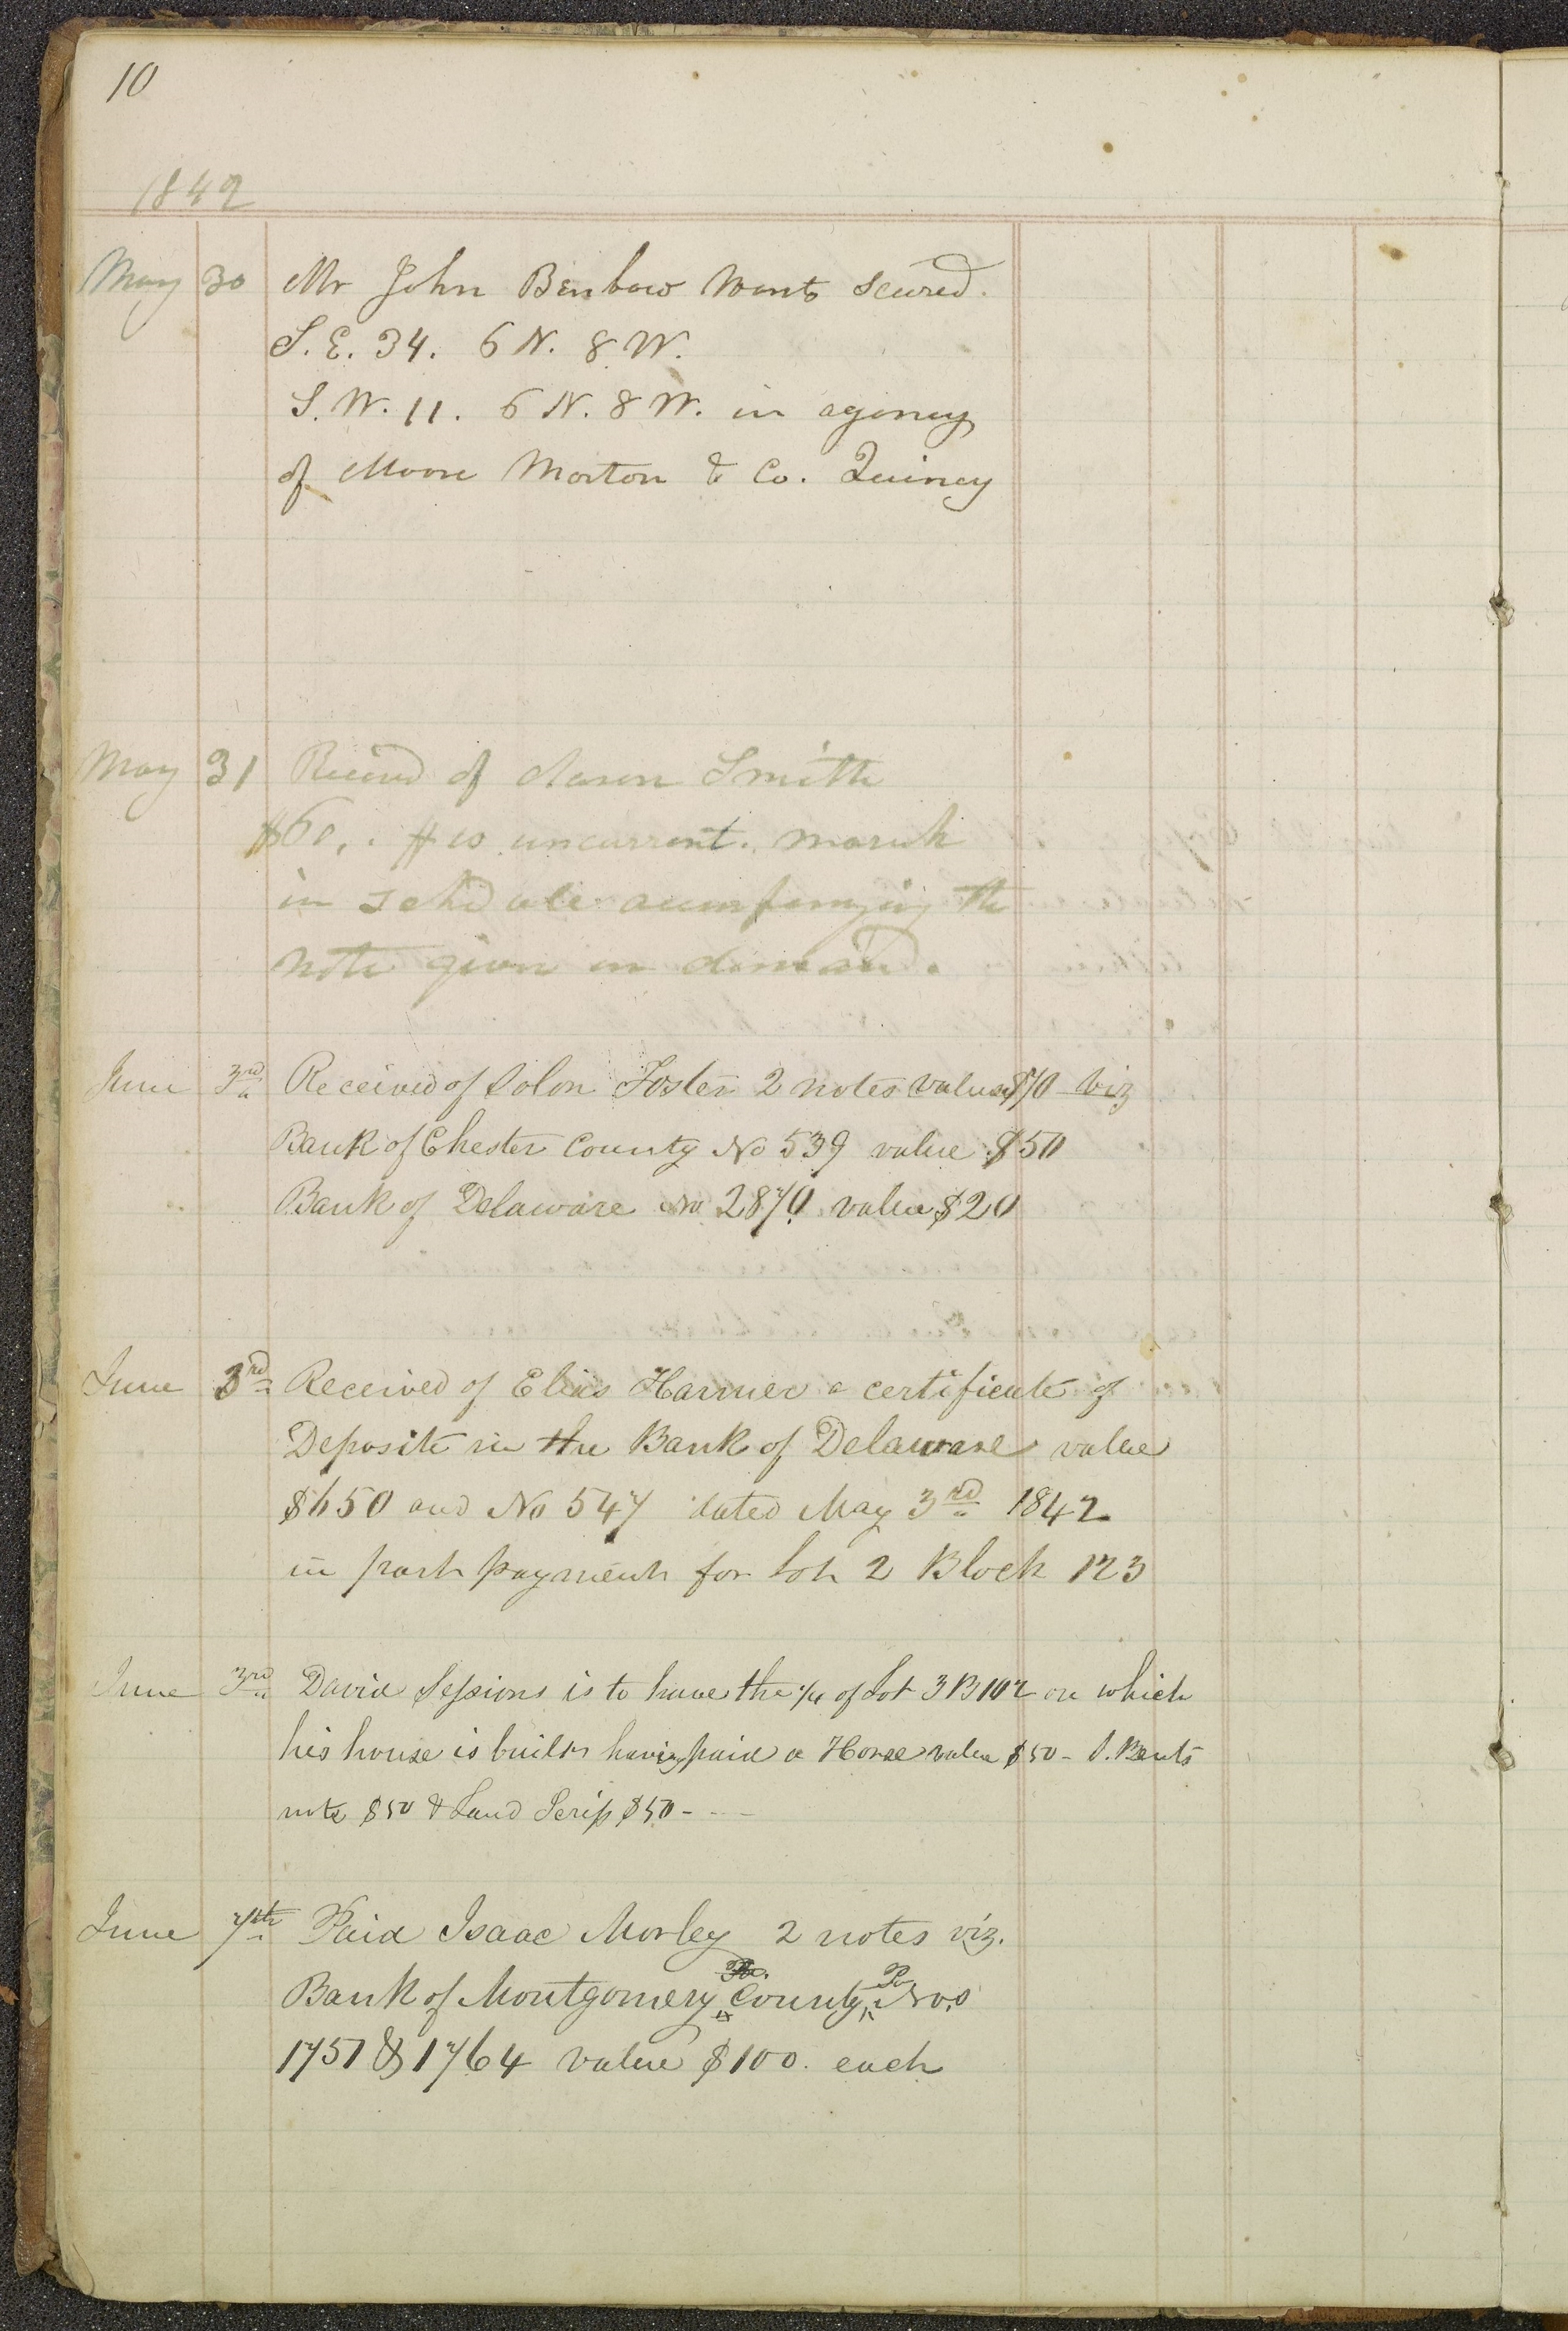 10
1842
May 30 Mr John Benbow wants scured.
S.E. 34. 6 N. 8 W.
S.W. 11. 6 N. 8 W. in agency
of Moore Morton & Co. Quincy
May 31 Received of Aaron Smith
$60,. $10 uncurrent.
in accompanying the
note given on demand.
June 3rd Received of Solon Foster 2 notes value $70 viz
Bank of Chester County No 539 value $50
Bank of Delaware No 2870 value $20
June 3rd Received of Elias Harmer a certificate of
Deposite in the Bank of Delaware value
$650 and No 547 dated May 3rd 1842
in part payment for Lot 2 Block 123
June 3rd David Sessions is to have the 1/4 of Lot 3 B 102 on which
his house is built having paid a Horse value $50 - S. Bents
note $50 & Land Scrip $50 - - -
June 7th Paid Isaac Morley 2 notes viz.
Bank of Montgomery County, Pa Nos
1751 & 1764 value $100. each